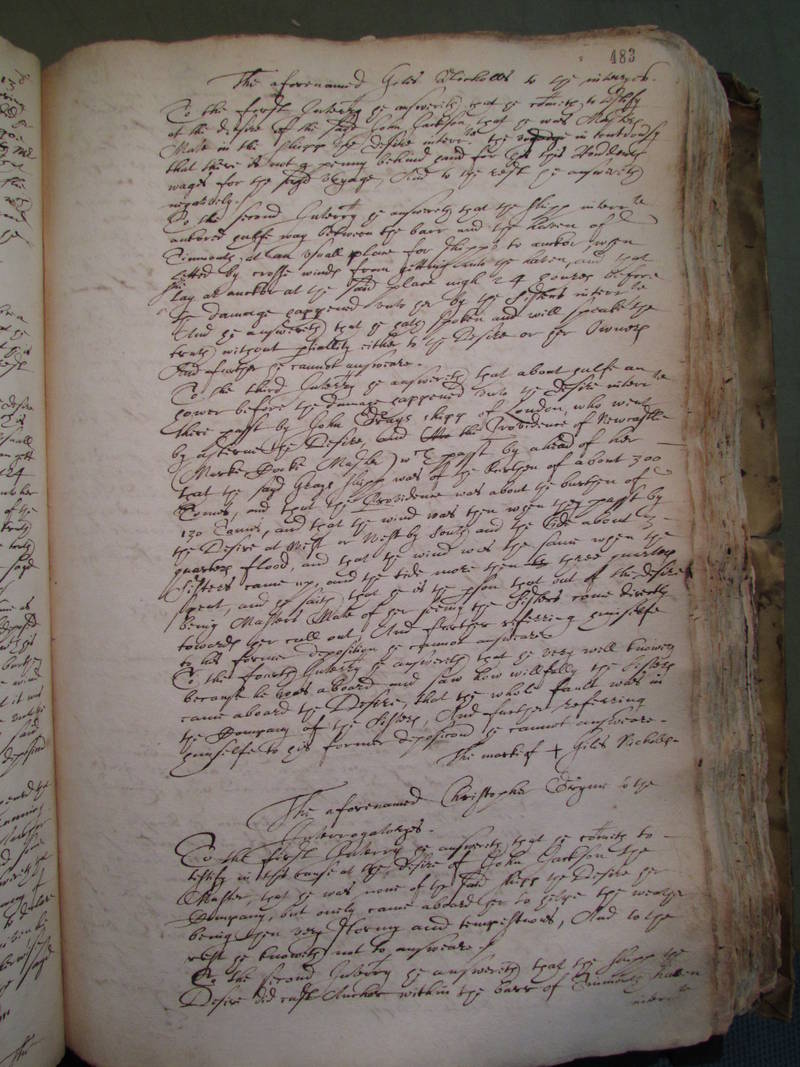 483
The aforenamed Giles Nicholls to the interries.
To the first Interry he answereth that he cometh to testify
at the desire of the said John Jackson, that he was Masters
Mate in the shipp the desire interrte the voyage in controversy
that there is not a penny behind paid for his this Rendents
wages for the said voyage, And to the rest he answereth
negatively./
To the second Interry he answereth that the shipp interrte
ankored halfe way betweene the barr and the haven of
Tinmouth, at an usuall place for shipps to ankor when
letted by crosse winds from getting into the haven, and that
shee lay at anckor at the said place nigh 24 houres before
the damage happened unto her by the Sisters interrte
And he answereth that he hath spoken and will speake the
truth without partiallity either to the Desire or her Owners
And further he cannot answeare.
To the third Interry he answereth that about halfe an
hower before the damage happened unto the Desire interrte
there past by John Grays shipp of London, who went
by a sterne the Desire, and the Providence of Newcastle
(Marke Master) wch past by ahead of her
that the said Grays shipp was of the burthen of about 300
Tonnes, and that the Providence was about the burthen of
130 Tonnes, and that the wind was then when they past by
the Desire at West or West by South and the tide about 3
quarters flood, and that the wind was the same when the
Sisters came up, and the tide more then three quarters
spent, and he saith that he is the pson that out of the desire
being Masters Mate of her seeing the Sisters come directly
towards her call out, And further referring himselfe
to his former deposition he cannot answeare
To the fourth Interry he answereth that he very well knoweth
because he was aboard and saw how willfully the Sisters
came aboard the Desire, that the whole fault was in
the Company of the Sisters, And further referring
himselfe to his former deposicon he cannot answeare.
The marke of + Giles Nicholls.
The aforenamed Christopher to the
Interrogatories.
To the first Interry he answereth that he cometh to
testify in this cause at the desire of John Jackson the
Master, that he was none of the said shipp the Desire her
Company, but onely came aboard her to helpe the weather
being then very stormy and tempestuous, And to the
rest he knoweth not to answeare./
To the second Interry he answereth that the shipp the
Desire did cast Anchor within the barr of Tinmouth haven
interrte